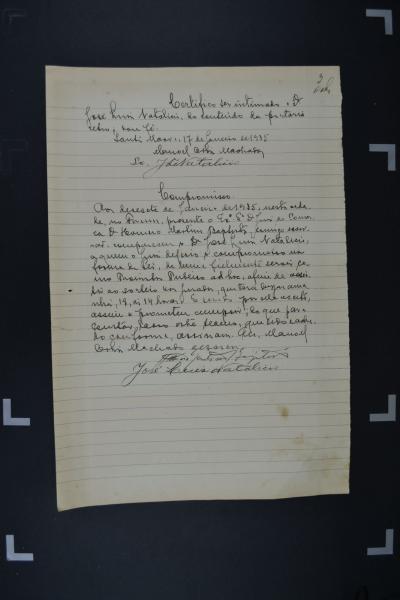 3
Certifico ter intimado o Dr
José Luis Natalicio, do conteúdo da portaria
retro, dou fé.
Santa Maria, 17 de Janeiro de 1935
Manoel Machado
José Natalicio
Compromisso
Aos dezesete de Janeiro de 1935, nesta cida-
de, no Forum, presente o Dr. Juiz de Comar-
ca Dr Homero Martins Baptista, comigo escri-
vão compareceu o Dr José Luis Natalicio,
a quem o Juiz deferio o compromisso na
forma da lei, de bem e fielmente servir como
Promotor Publico ad hoc, afim de assis-
tir ao sorteio dos jurados, que terá logar ama-
nhã, 18, as 14 horas. E sendo por elle aceito,
assim o prometteu cumprir, do que para
constar, lavro este termo, que lido e acha-
do conforme, assinam. Eu, Manoel
Machado escrivão,
José Luis Natalicio